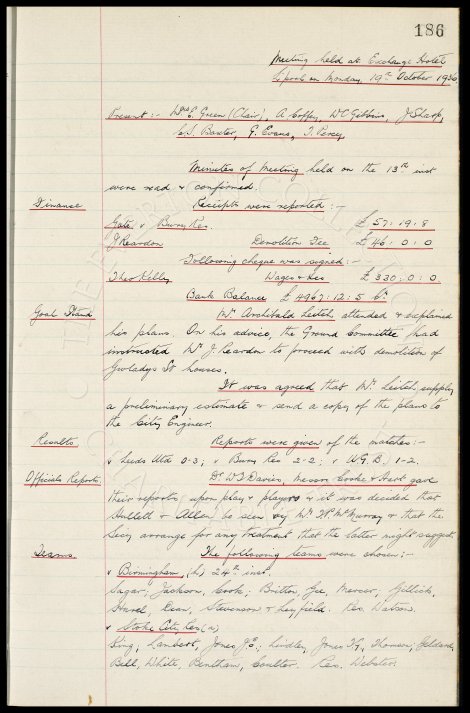 186
Meeting held at Exchange Hotel
L'pool on Monday, 19th October 1936
Present :- W.C. Green (Chair), A Coffey, W C Gibbins, J Sharp,
C.S. Baxter, G. Evans, T. Percy
Minutes of Meeting held on the 13th inst
were read & confirmed.
Finance Receipts were reported :-
Gate v Bury Res. £ 57 : 19 : 8
J Reardon Demolition Fee £ 46 : 0 : 0
Following cheque was signed :-
Theo Kelly Wages &c £ 330 : 0 : 0
Bank Balance £ 4967 : 12 : 5
Goal Stand Mr Archibald Leitch attended & explained
his plans. On his advice, the Ground Committee had
instructed Mr J. Reardon to proceed with demolition of
Gwladys St houses.
It was agreed that Mr. Leitch supply
a preliminary estimate & send a copy of the plans to
the City Engineer.
Results Reports were given of the matches :-
v Leeds Utd 0-3 ; v Bury Res 2-2 ; v U.G.B. 1-2.
Officials Reports. Dr. W S Davies, Messrs Cooke & Hart gave
their reports, upon play & players & it was decided that
& Allen be seen by Mr McMurray & that the
Secy arrange for any treatment that the latter might suggest.
Teams. The following teams were chosen :-
v Birmingham, (h) 24th inst.
Sagar; Jackson, Cook; Britton, Gee, Mercer; Gillick,
Dean, Stevenson & Leyfield. Res. Watson.
v Stoke City Res (a)
King; Lambert, Jones J E; Lindley, Jones T G, Thomson; Geldard,
Bell, White, Bentham, Coulter. Res. Webster.